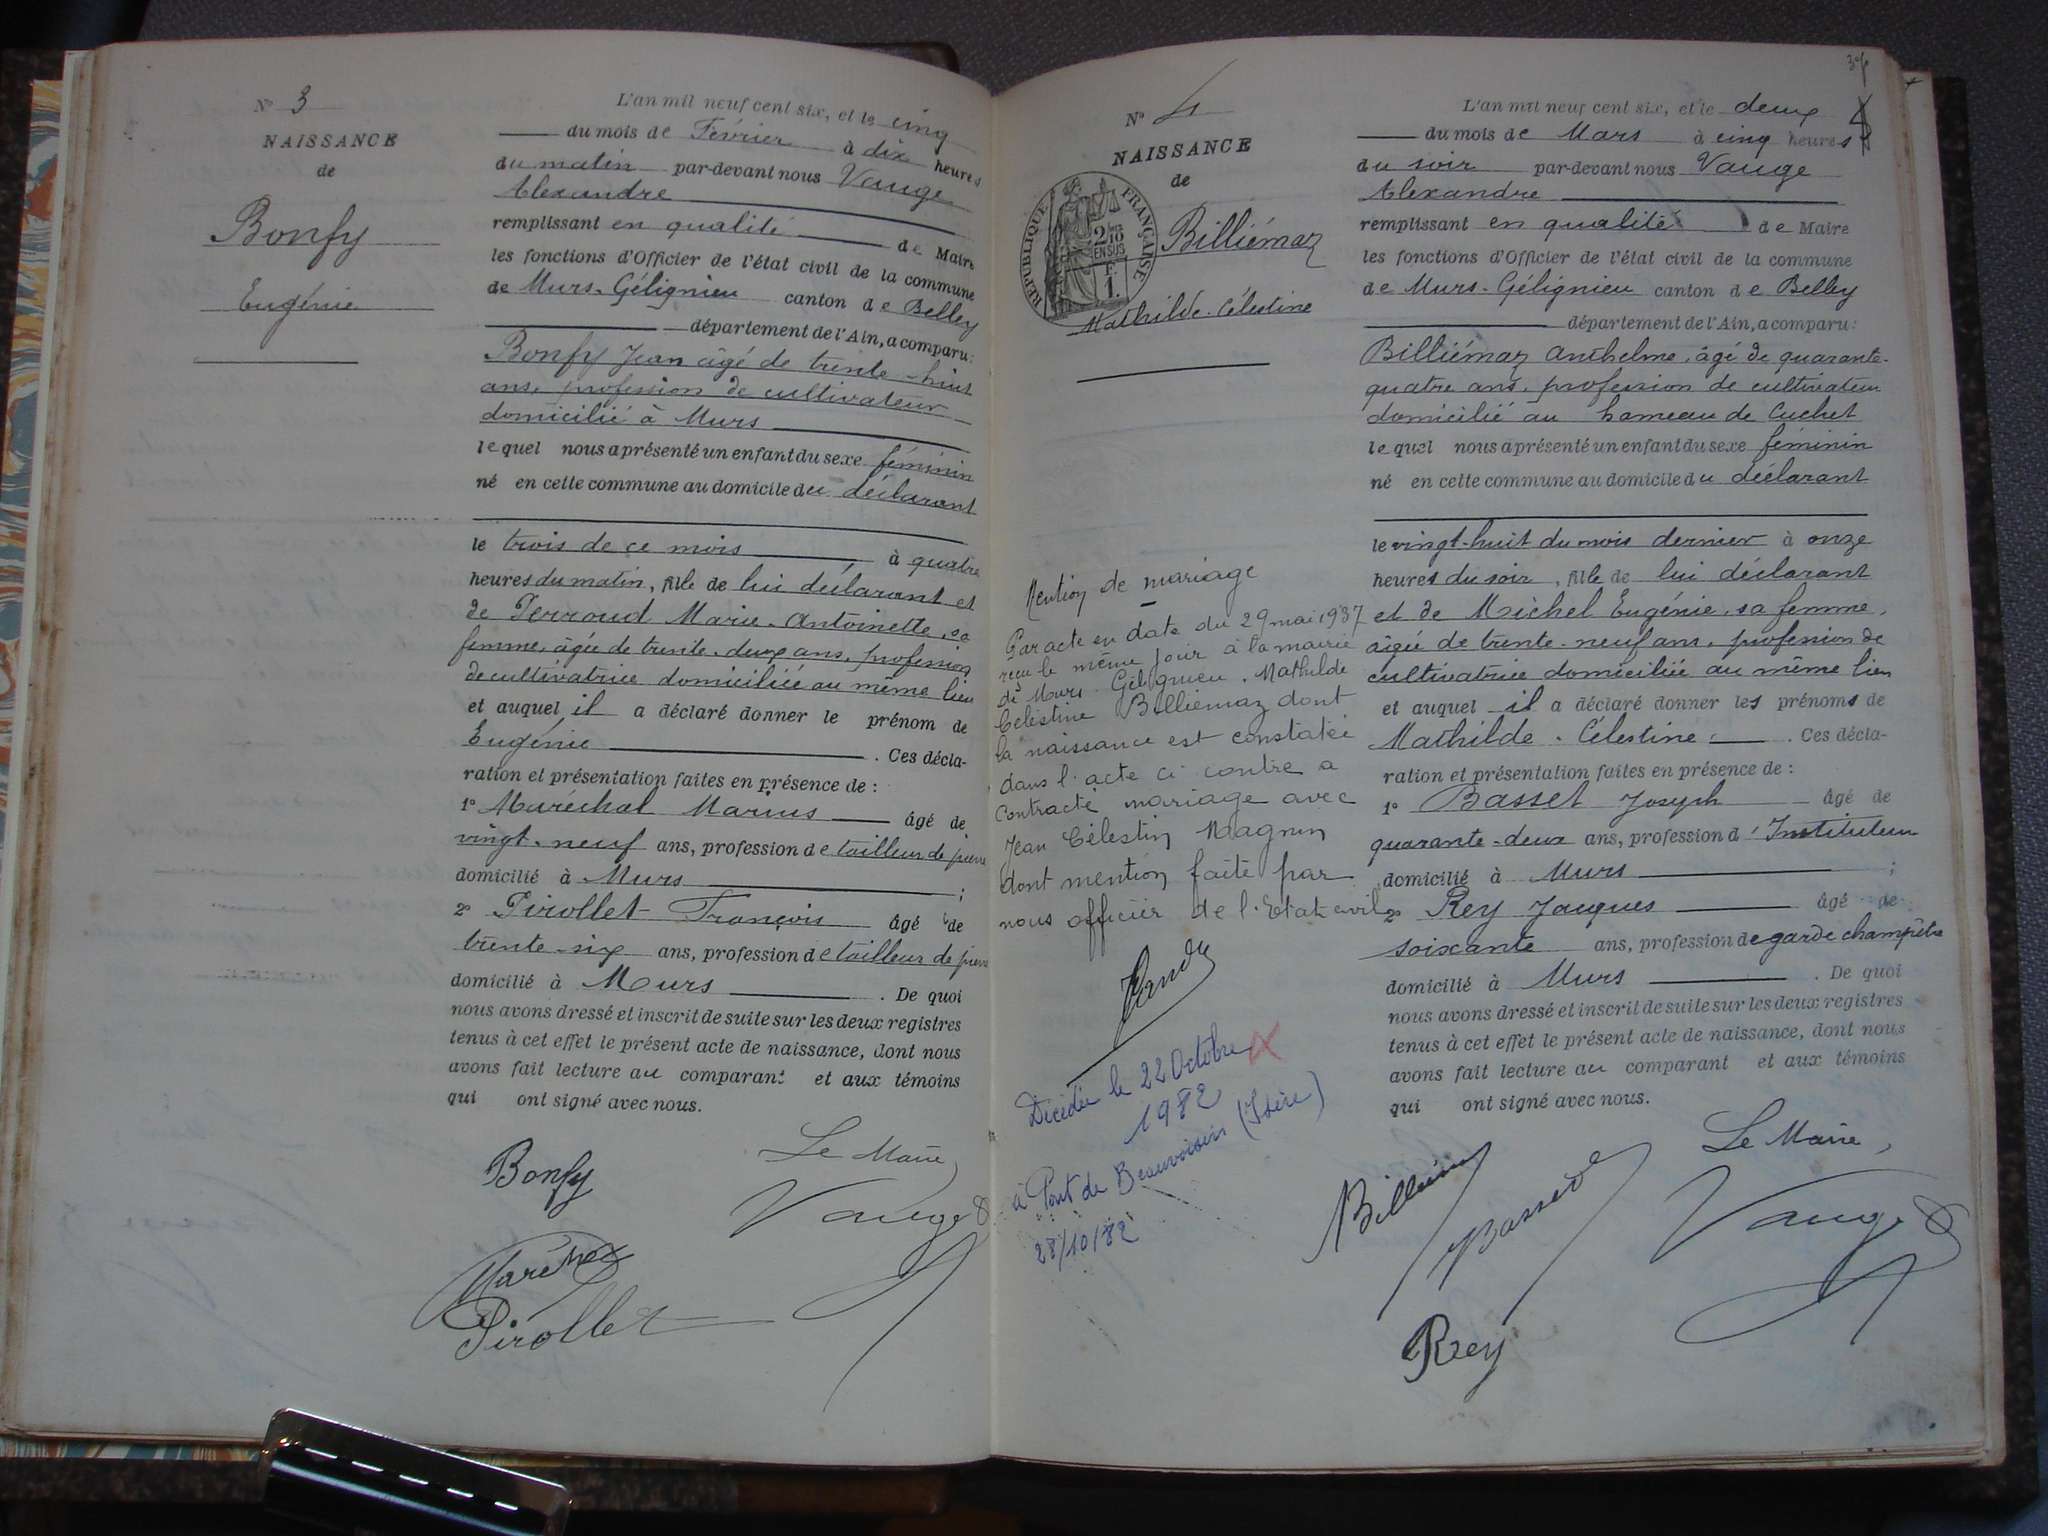 N° 3
NAISSANCE
de
Bonfy
Eugénie
L'an mil neuf cent six, et le cinq
du mois de Février à dix heures
du matin par-devant nous Vauge
Alexandre
remplissant en qualité de Maire
les fonctions d'Officier de l'état civil de la commune
de Murs-Gélignieu canton de Belley
département de l'Ain, a comparu:
Bonfy Jean âgé de trente-huit
ans, profession de cultivateur
domicilié à Murs
lequel nous a présenté un enfant du sexe féminin
né en cette commune au domicile du déclarant
le trois de ce mois à quatre
heures du matin, fille de lui déclarant et
de Perroud Marie-Antoinette, sa
femme, âgée de trente-deux ans, profession
de cultivatrice domiciliée au même lieu
et auquel il a déclaré donner le prénom de
Eugénie. Ces décla-
ration et présentation faites en présence de :
1° Maréchal Marius âgé de
vingt-neuf ans, profession de tailleur de pierre
domicilié à Murs ;
2° Pirollet François âgé de
trente-six ans, profession de tailleur de pierre
domicilié à Murs. De quoi
nous avons dressé et inscrit de suite sur les deux registres
tenus à cet effet le présent acte de naissance, dont nous
avons fait lecture au comparant et aux témoins
qui ont signé avec nous.
Bonfy
Le Maire
Vauge
Maréchal
Pirollet
N° 4
NAISSANCE
de
RÉPUBLIQUE FRANÇAISE
2/10 EN SUS
F. 1.
Billiémaz
Mathilde-Célestine
Mention de mariage
Par acte en date du 29 mai 1937
reçu le même jour à la mairie
de Murs-Gélignieu, Mathilde
Célestine Billiémaz dont
la naissance est constatée
dans l'acte ci contre a
contracté mariage avec
Jean Célestin Magnin
dont mention faite par
nous officier de l'Etat civil
Décédée le 22 Octobre
1982
à Pont de Beauvoisin (Isère)
28/10/82
L'an mil neuf cent six, et le deux
du mois de Mars à cinq heures
du soir par-devant nous Vauge
Alexandre
remplissant en qualité de Maire
les fonctions d'Officier de l'état civil de la commune
de Murs-Gélignieu canton de Belley
département de l'Ain, a comparu:
Billiémaz Anthelme, âgé de quarante-
quatre ans, profession de cultivateur
domicilié au hameau de Cuchet
lequel nous a présenté un enfant du sexe féminin
né en cette commune au domicile du déclarant
le vingt-huit du mois dernier à onze
heures du soir, fille de lui déclarant
et de Michel Eugénie, sa femme,
âgée de trente-neuf ans, profession de
cultivatrice domiciliée au même lieu
et auquel il a déclaré donner les prénoms de
Mathilde-Célestine. Ces décla-
ration et présentation faites en présence de :
1° Basset Joseph âgé de
quarante-deux ans, profession d'Instituteur
domicilié à Murs ;
2° Rey Jacques âgé de
soixante ans, profession de garde champêtre
domicilié à Murs. De quoi
nous avons dressé et inscrit de suite sur les deux registres
tenus à cet effet le présent acte de naissance, dont nous
avons fait lecture au comparant et aux témoins
qui ont signé avec nous.
Le Maire,
Basset
Vauge
Rey